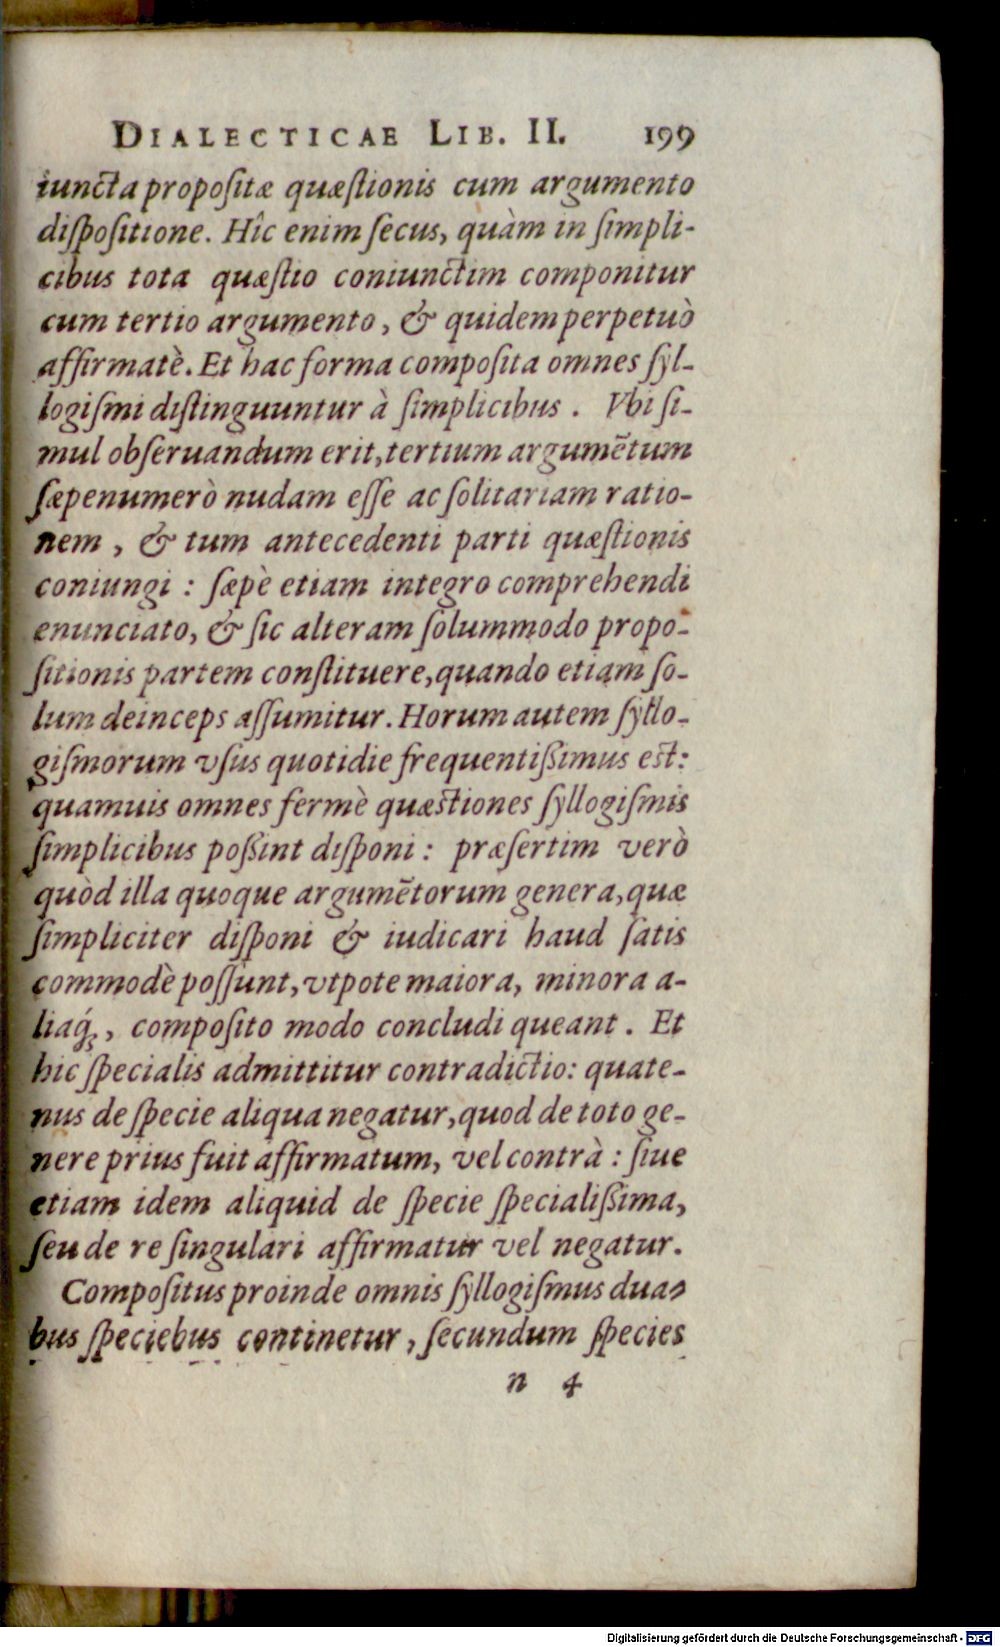 DIALECTICAE LIB. II. 199
iuncta propositæ quæſtionis cum argumento
diſpoſitione. Hîc enim ſecus, quàm in ſimpli-
cibus tota quæſtio coniunctim componitur
cum tertio argumento, & quidem perpetuò
affirmatè. Et hac forma compoſita omnes ſyl-
logiſmi diſtinguuntur à ſimplicibus. Vbi ſi-
mul obſeruandum erit, tertium argumẽtum
ſæpenumerò nudam eſſe ac ſolitariam ratio-
nem, & tum antecedenti parti quæſtionis
coniungi: ſæpè etiam integro comprehendi
enunciato, & ſic alteram ſolummodo propo-
ſitionis partem conſtituere, quando etiam ſo-
lum deinceps aſſumitur. Horum autem ſyllo-
giſmorum vſus quotidie frequentißimus est:
quamuis omnes fermè quæstiones ſyllogiſmis
ſimplicibus poßint diſponi: præſertim verò
quòd illa quoque argumẽtorum genera, quæ
ſimpliciter diſponi & iudicari haud ſatis
commodè poſſunt, vtpote maiora, minora a-
liaq́ꝫ, compoſito modo concludi queant. Et
hic ſpecialis admittitur contradictio: quate-
nus de ſpecie aliqua negatur, quod de toto ge-
nere prius fuit affirmatum, vel contrà: ſiue
etiam idem aliquid de ſpecie ſpecialißima,
ſeu de re ſingulari affirmatur vel negatur.
Compoſitus proinde omnis ſyllogiſmus dua-
bus ſpeciebus continetur, ſecundum ſpecies
n 4
Digitalisierung gefördert durch die Deutsche Forschungsgemeinschaft - DFG